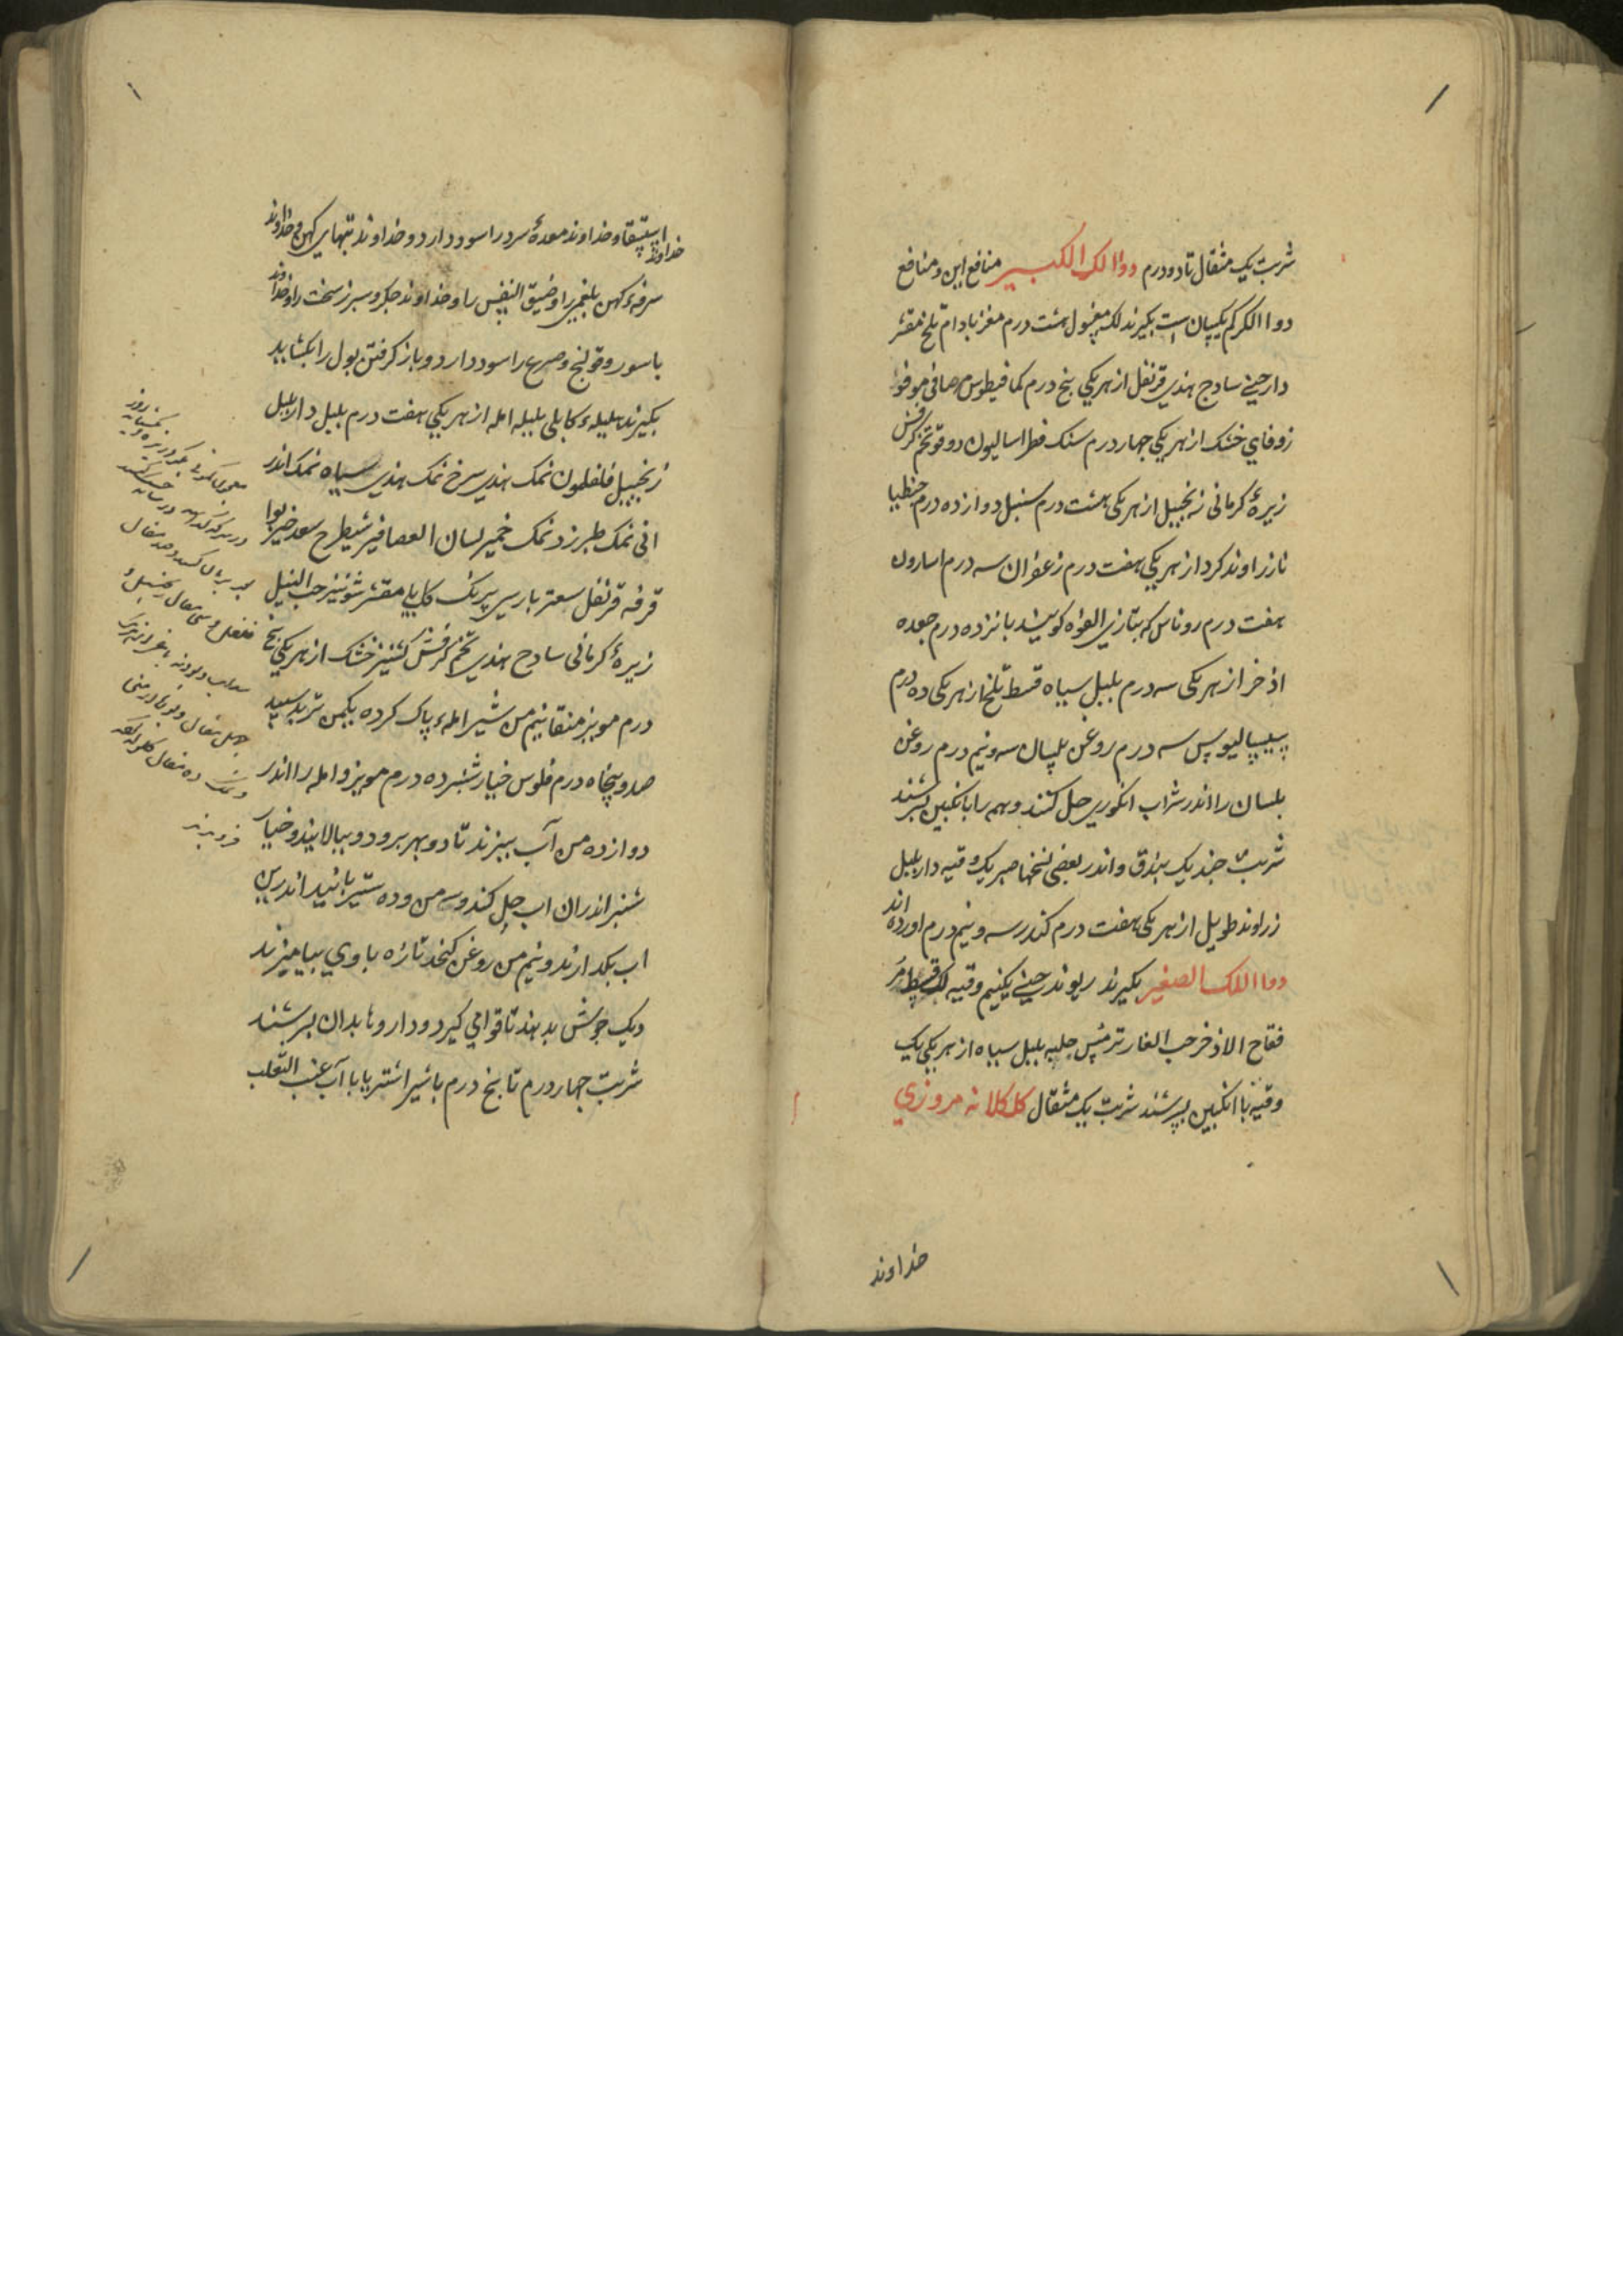 شربت یک مثقال تا دو درم دوا الک الکبیر منافع این و منافع
دوا الکرکم یکسان است بکیرند لک مغسول هشت درم مغز بادام تلخ مقشر
دارچینی سادج هندی قرنفل از هر یکی پنج درم کمافیطوس صافی موفو
زوفای خشک از هر یکی چهار درم سنک فطراسالیون دوقو تخم کرفس
زیرهٔ کرمانی زنجبیل از هر یکی هشت درم سنبل دوازده درم جنطیا
نا زراوند کرد از هر یکی هفت درم زعفران سه درم اسارون
هفت درم روناس که بتازی الفوه کویند پانزده درم جعده
اذخر از هر یکی سه درم بلبل سیاه قسط تلخ از هر یکی ده درم
سیسالیوس سه درم روغن بلسان سه و نیم درم روغن
بلسان را اندر شراب انکوری حل کنند و همه را با نکبین بسرشند
شربت چند یک بندق و اندر بعضی نسخها صبر یک وقیه داربلبل
زراوند طویل از هر یکی هفت درم کندر سه و نیم درم اورده اند
دوا اللک الصغیر بکیرند ریوند چینی یکنیم وقیه لک قسط مر
فقاح الاذخر حب الغار ترمس حلبه بلبل سیاه از هر یکی یک
وقیه با انکبین بسرشند شربت یک مثقال کلکلانه مروزی
خداوند
خداوند استسقا و خداوند معدهٔ سرد را سود دارد و خداوند تبهای کهن و خداوند
سرفهٔ کهن بلغمی را و ضیق النفس را و خداوند جکر و سبرز سخت را و خداوند
باسور و قولنج و صرع را سود دارد و باز کرفتن بول را بکشاید
بکیرند هلیلهٔ کابلی بلیله امله از هر یکی هفت درم بلبل داربلبل
زنجبیل فلفلمون نمک هندی سرخ نمک هندی سیاه نمک اندر
انی نمک طبرزد نمک خمیر لسان العصافیر شیطرج سعد خیربوا
قرفه قرنفل سعتر بارسی برنک کابلی مقشر شونیز حب النیل
زیرهٔ کرمانی سادج هندی تخم کرفس کشنیز خشک از هر یکی پنج
درم مویز منقا نیم من شیر امله پاک کرده یکمن تربد سپید
صد و پنجاه درم فلوس خیار شنبر ده درم مویز و امله را اندر
دوازده من آب ببزند تا دو بهر برود و ببالایند و خیار
شنبر اندران اب حل کنند و سه من و ده ستیر بانید اندرین
اب بکدازند و نیم من روغن کنجد تازه با وی بیامیزند
و یک جوش بدهند تا قوامی کیرد و داروها بدان بسرشند
شربت چهار درم تا پنج درم با شیر اشتر یا با آب عنب الثعلب